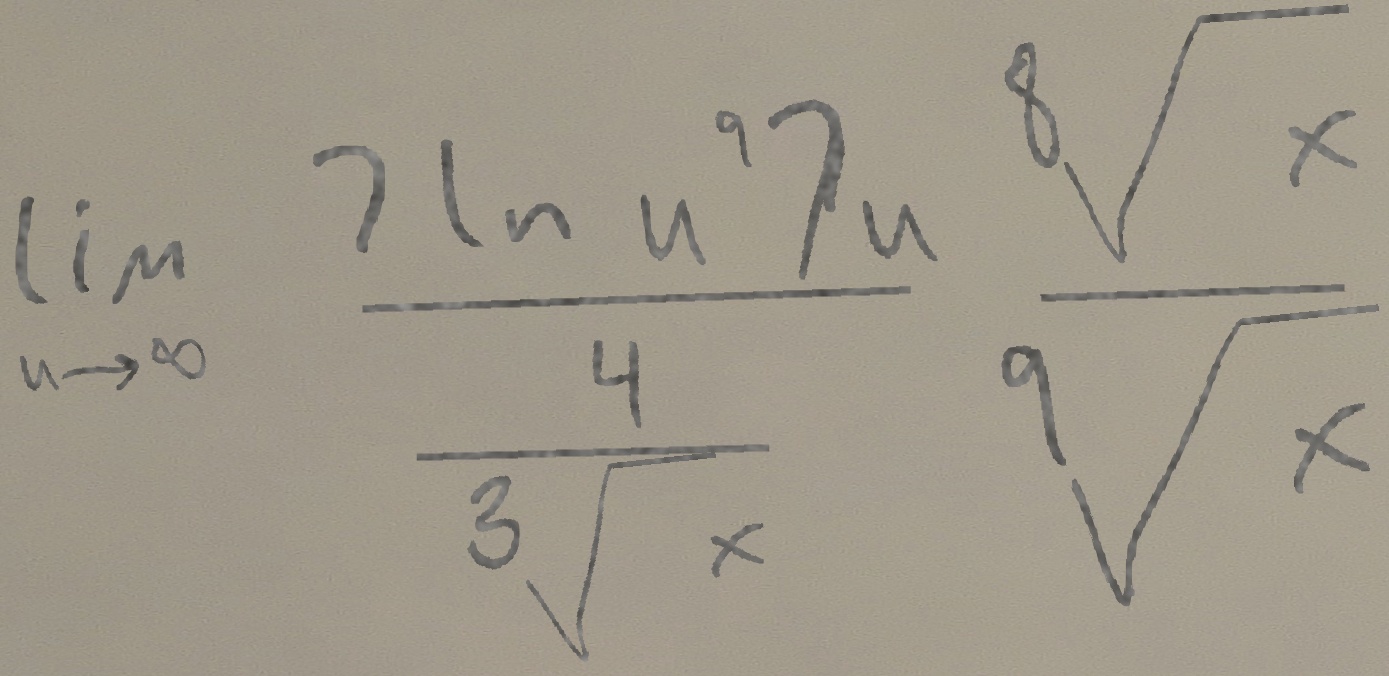 \lim_{u \to \infty} \frac{7 \ln u^9 7u}{\frac{4}{\sqrt[3]{x}}} \frac{\sqrt[8]{x}}{\sqrt[9]{x}}